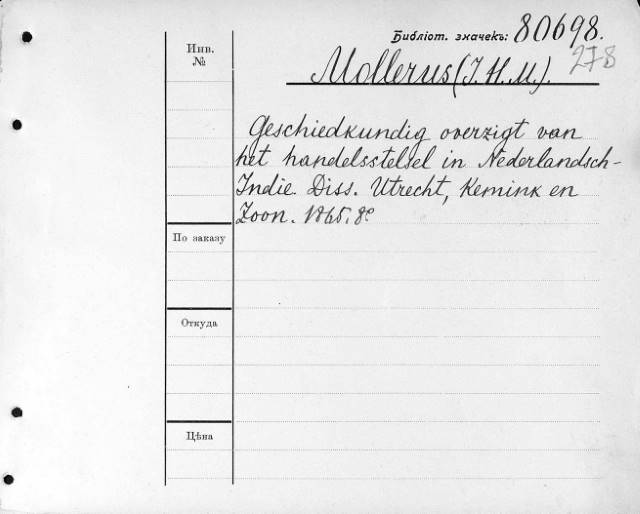 Библіот. значекъ: 80698.
278
Инв. №
Mollerus (J. H. M.).
Geschiedkundig overzigt van
het handelsstelsel in Nederlandsch-
Indie. Diss. Utrecht, Kemink en
Zoon. 1865. 8º
По заказу
Откуда
Цѣна